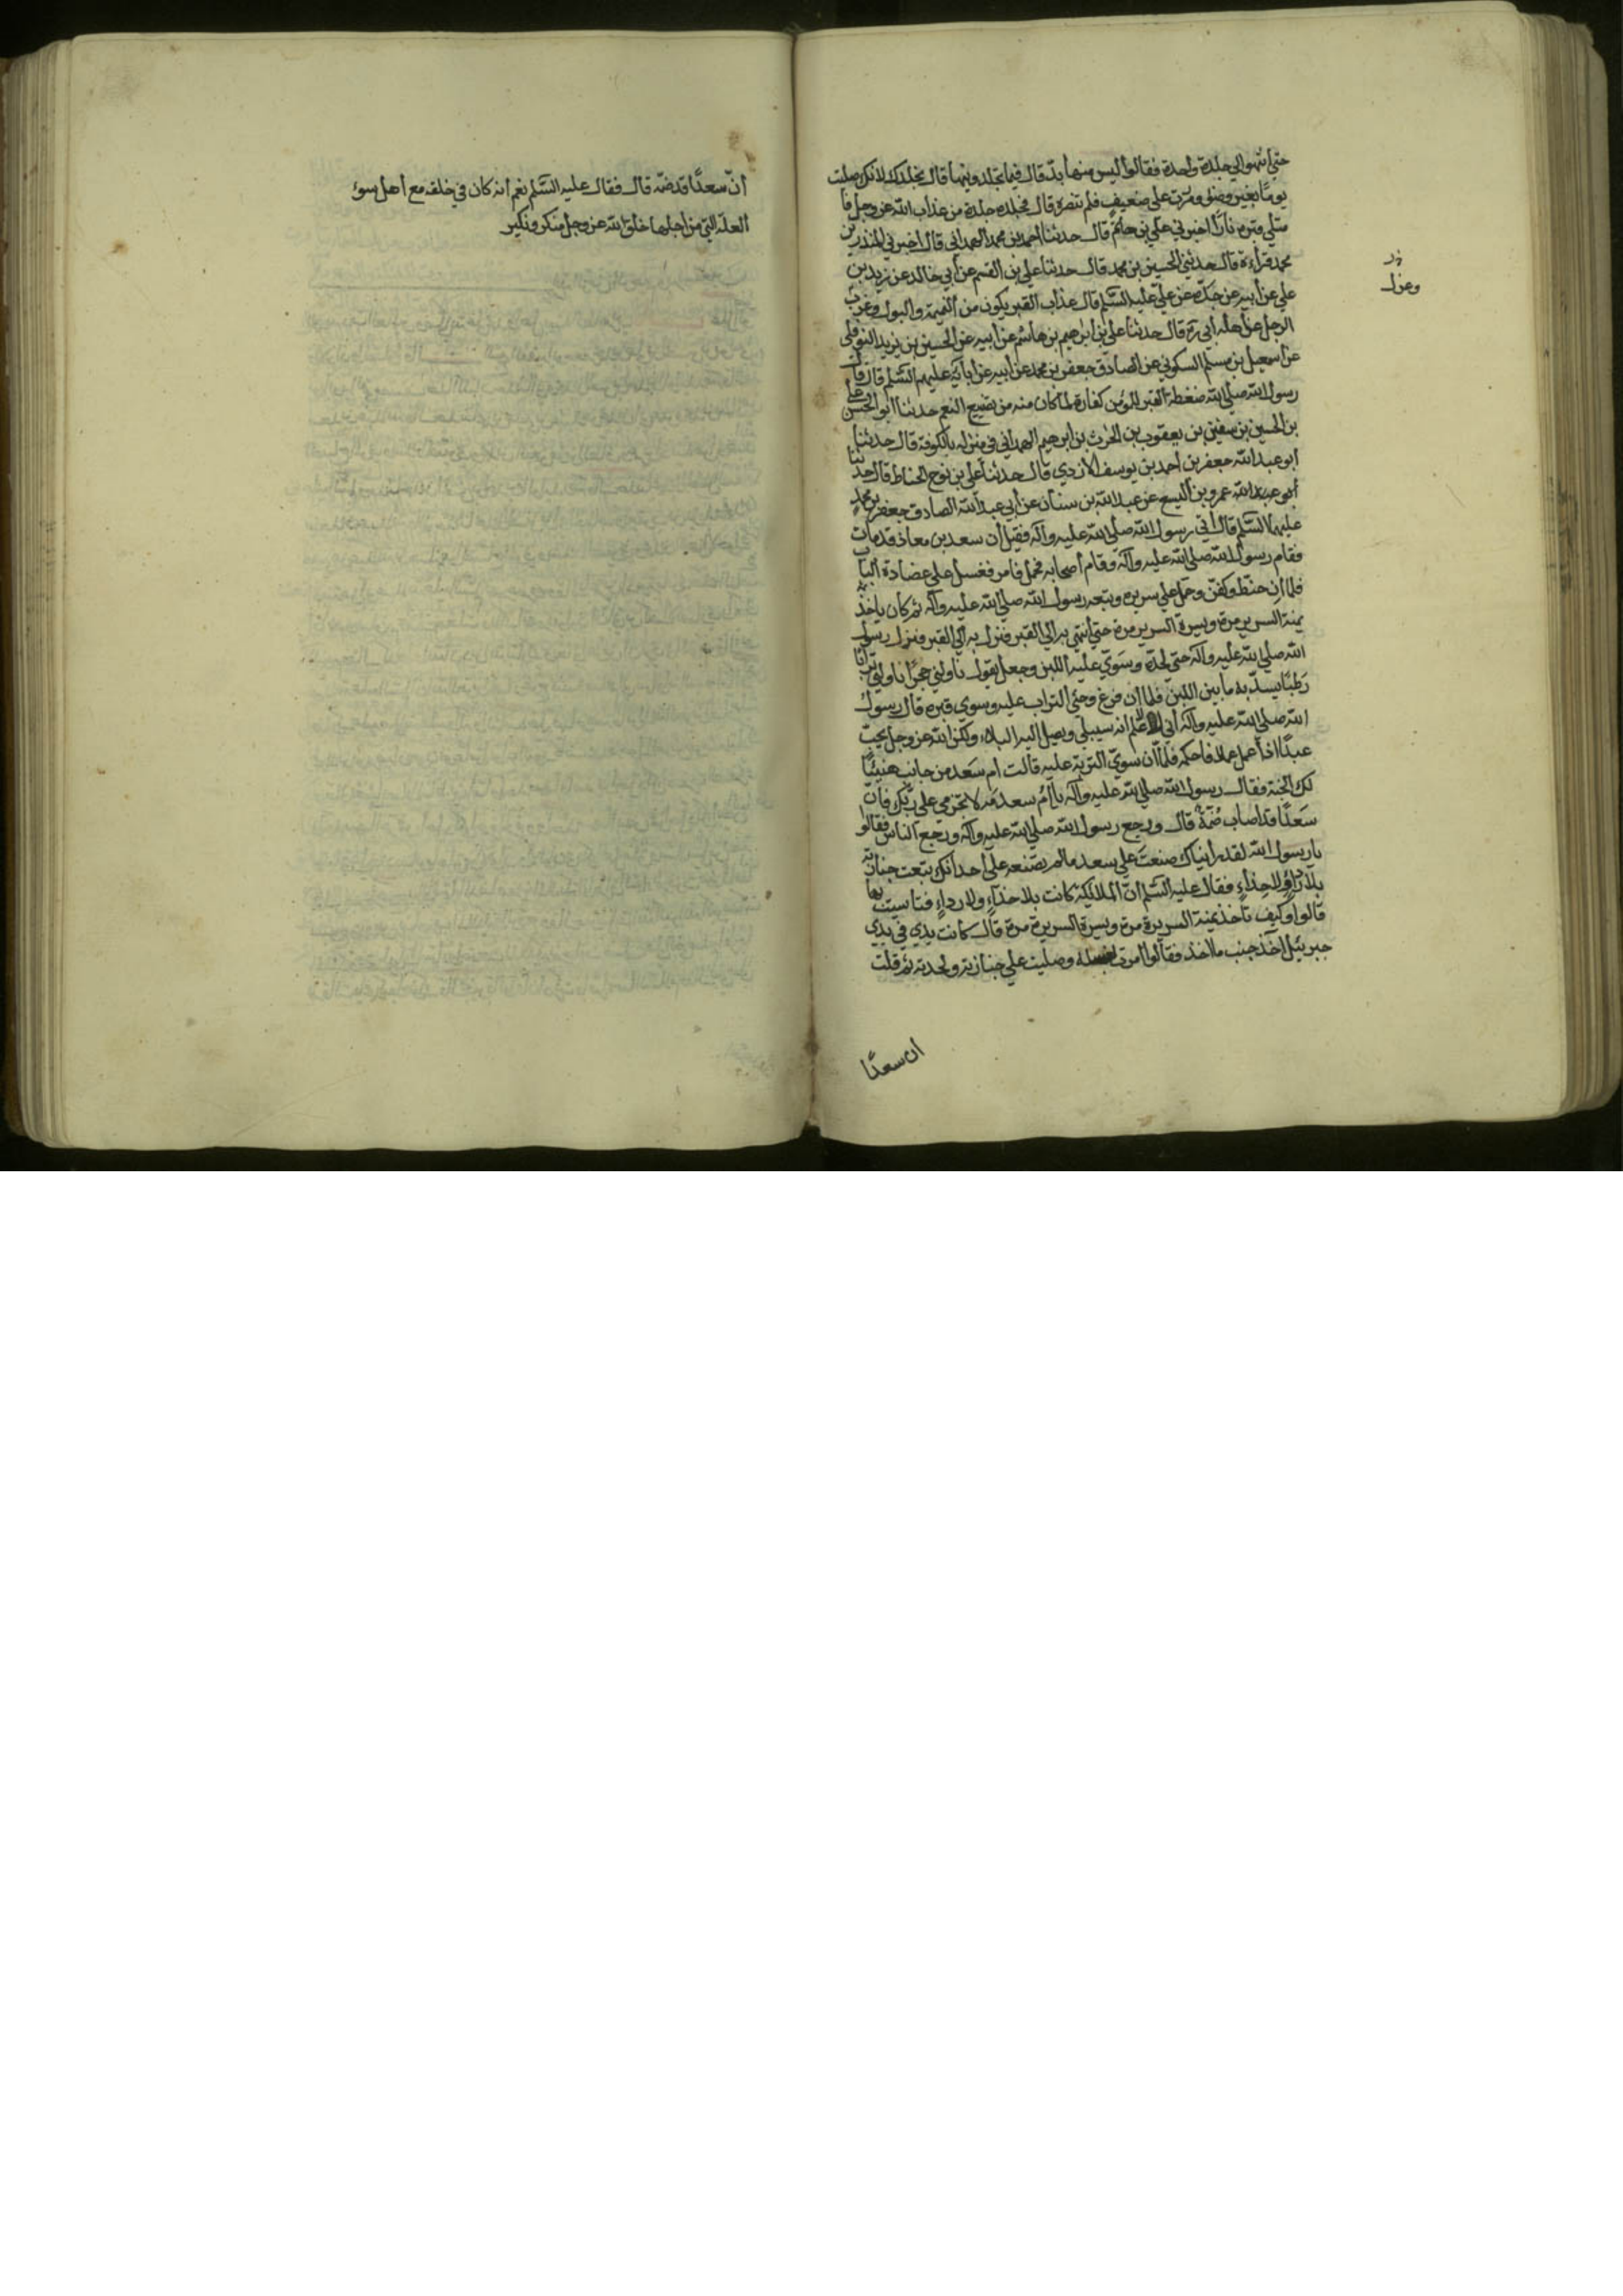 حتى انتهوا الى جلدة واحدة فقالوا ليس منها بد قال فيما تجلدونيها قال نجلدك لانك صليت
يومًا بغير وضوء ومررت على ضعيف فلم تنصره قال فجلده جلدة من عذاب الله عز وجل فا
متلى قبره نارًا اخبرني علي بن حاتم قال حدثنا احمد بن محمد الهمداني قال اخبرني المنذر بن
محمد قراءة قال حدثني الحسين بن محمد قال حدثنا علي بن القسم عن أبي خالد عن زيد بن
علي عن أبيه عن جده عن علي عليه السلم قال عذاب القبر يكون من النميمة والبول وعزب
الرجل عن اهله أبي ره قال حدثنا علي بن ابرهيم بن هاشم عن ابيه عن الحسين بن يزيد النوفلي
عن اسمعيل بن مسلم السكوني عن الصادق جعفر بن محمد عن أبيه عن آبائه عليهم السلم قال قال
رسول الله صلى الله ضغطة القبر للمؤمن كفارة لما كان منه من تضييع النعم حدثنا ابو الحسن علي
بن الحسين بن سفين بن يعقوب بن الحرث بن ابرهيم الهمداني في منزله بالكوفة قال حدثنا
ابو عبد الله جعفر بن احمد بن يوسف الازدي قال حدثنا علي بن نوح الحناط قال حدثنا
أبو عبد الله عمرو بن اليسع عن عبد الله بن سنان عن أبي عبد الله الصادق جعفر بن محمد
عليهما السلم قال أتي رسول الله صلى الله عليه وآله فقيل أن سعد بن معاذ قد مات
فقام رسول الله صلى الله عليه وآله وقام أصحابه فحمل فامر فغسل على عضادة الباب
فلما ان حنط وكفن وحمل على سريره وتبعه رسول الله صلى الله عليه وآله ثم كان ياخذ
يمنة السرير مرة ويسرة السرير مرة حتى أنتهي به الى القبر فنزل به الى القبر فنزل رسول
الله صلى الله عليه وآله حتى لحده وسوّي عليه اللبن وجعل يقول ناولني حجرًا ناولني ترابًا
رطبًا يسدّ به ما بين اللبن فلما ان فرغ وحثى التراب عليه وسوي قبره قال رسول
الله صلى الله عليه وآله أني لاعلم انه سيبلى ويصل اليه البلاء ولكن الله عز وجل يحبّ
عبدًا اذا عمل عملا فاحكمه فلما أن سوّي التربة عليه قالت ام سعد من جانب هنيئًا
لك الجنة فقال رسول الله صلى الله عليه وآله يا أم سعد مه لا تحزمي على ربك فانّ
سعدًا قد اصاب ضمة قال ورجع رسول الله صلى الله عليه وآله ورجع الناس فقالوا
يا رسول الله لقد رأيناك صنعت على سعد ما لم تصنعه على أحد انك تبعت جنازته
بلا رداءٍ ولا حذاءٍ فقال عليه السلم انّ الملائكة كانت بلا حذاءٍ ولا رداءٍ فتاسيت بها
قالوا وكيف تاخذ يمنة السريرة مرة ويسرة السريرة مرة قال كانت يدي في يدي
جبرئيل اخذ جنب ما اخذ فقالوا امرت بغسله وصليت على جنازته ولحدته ثم قلت
ان سعدًا
وعزل
أنّ سعدًا قد ضمّه قال فقال عليه السلم نعم انه كان في خلقه مع أهل سوء
العلة التي من اجلها خلق الله عز وجل منكر ونكير